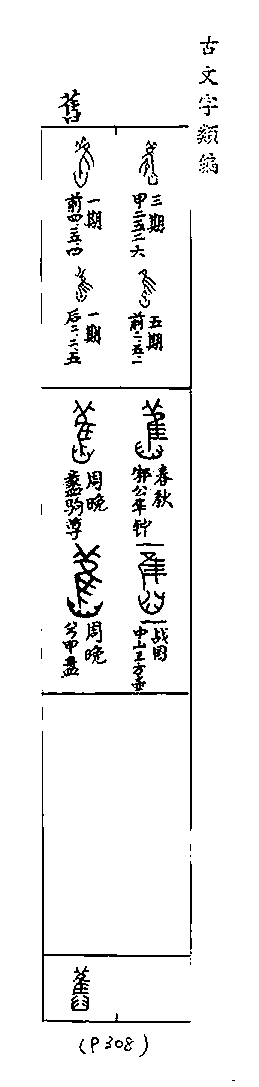 古文字類編
舊
三期
甲二五二六
五期
前二·五·二
一期
前四·五·四
一期
后二·二·五
春秋
邾公華钟
战国
中山王方壶
周晚
盠驹尊
周晚
兮甲盘
(P308)